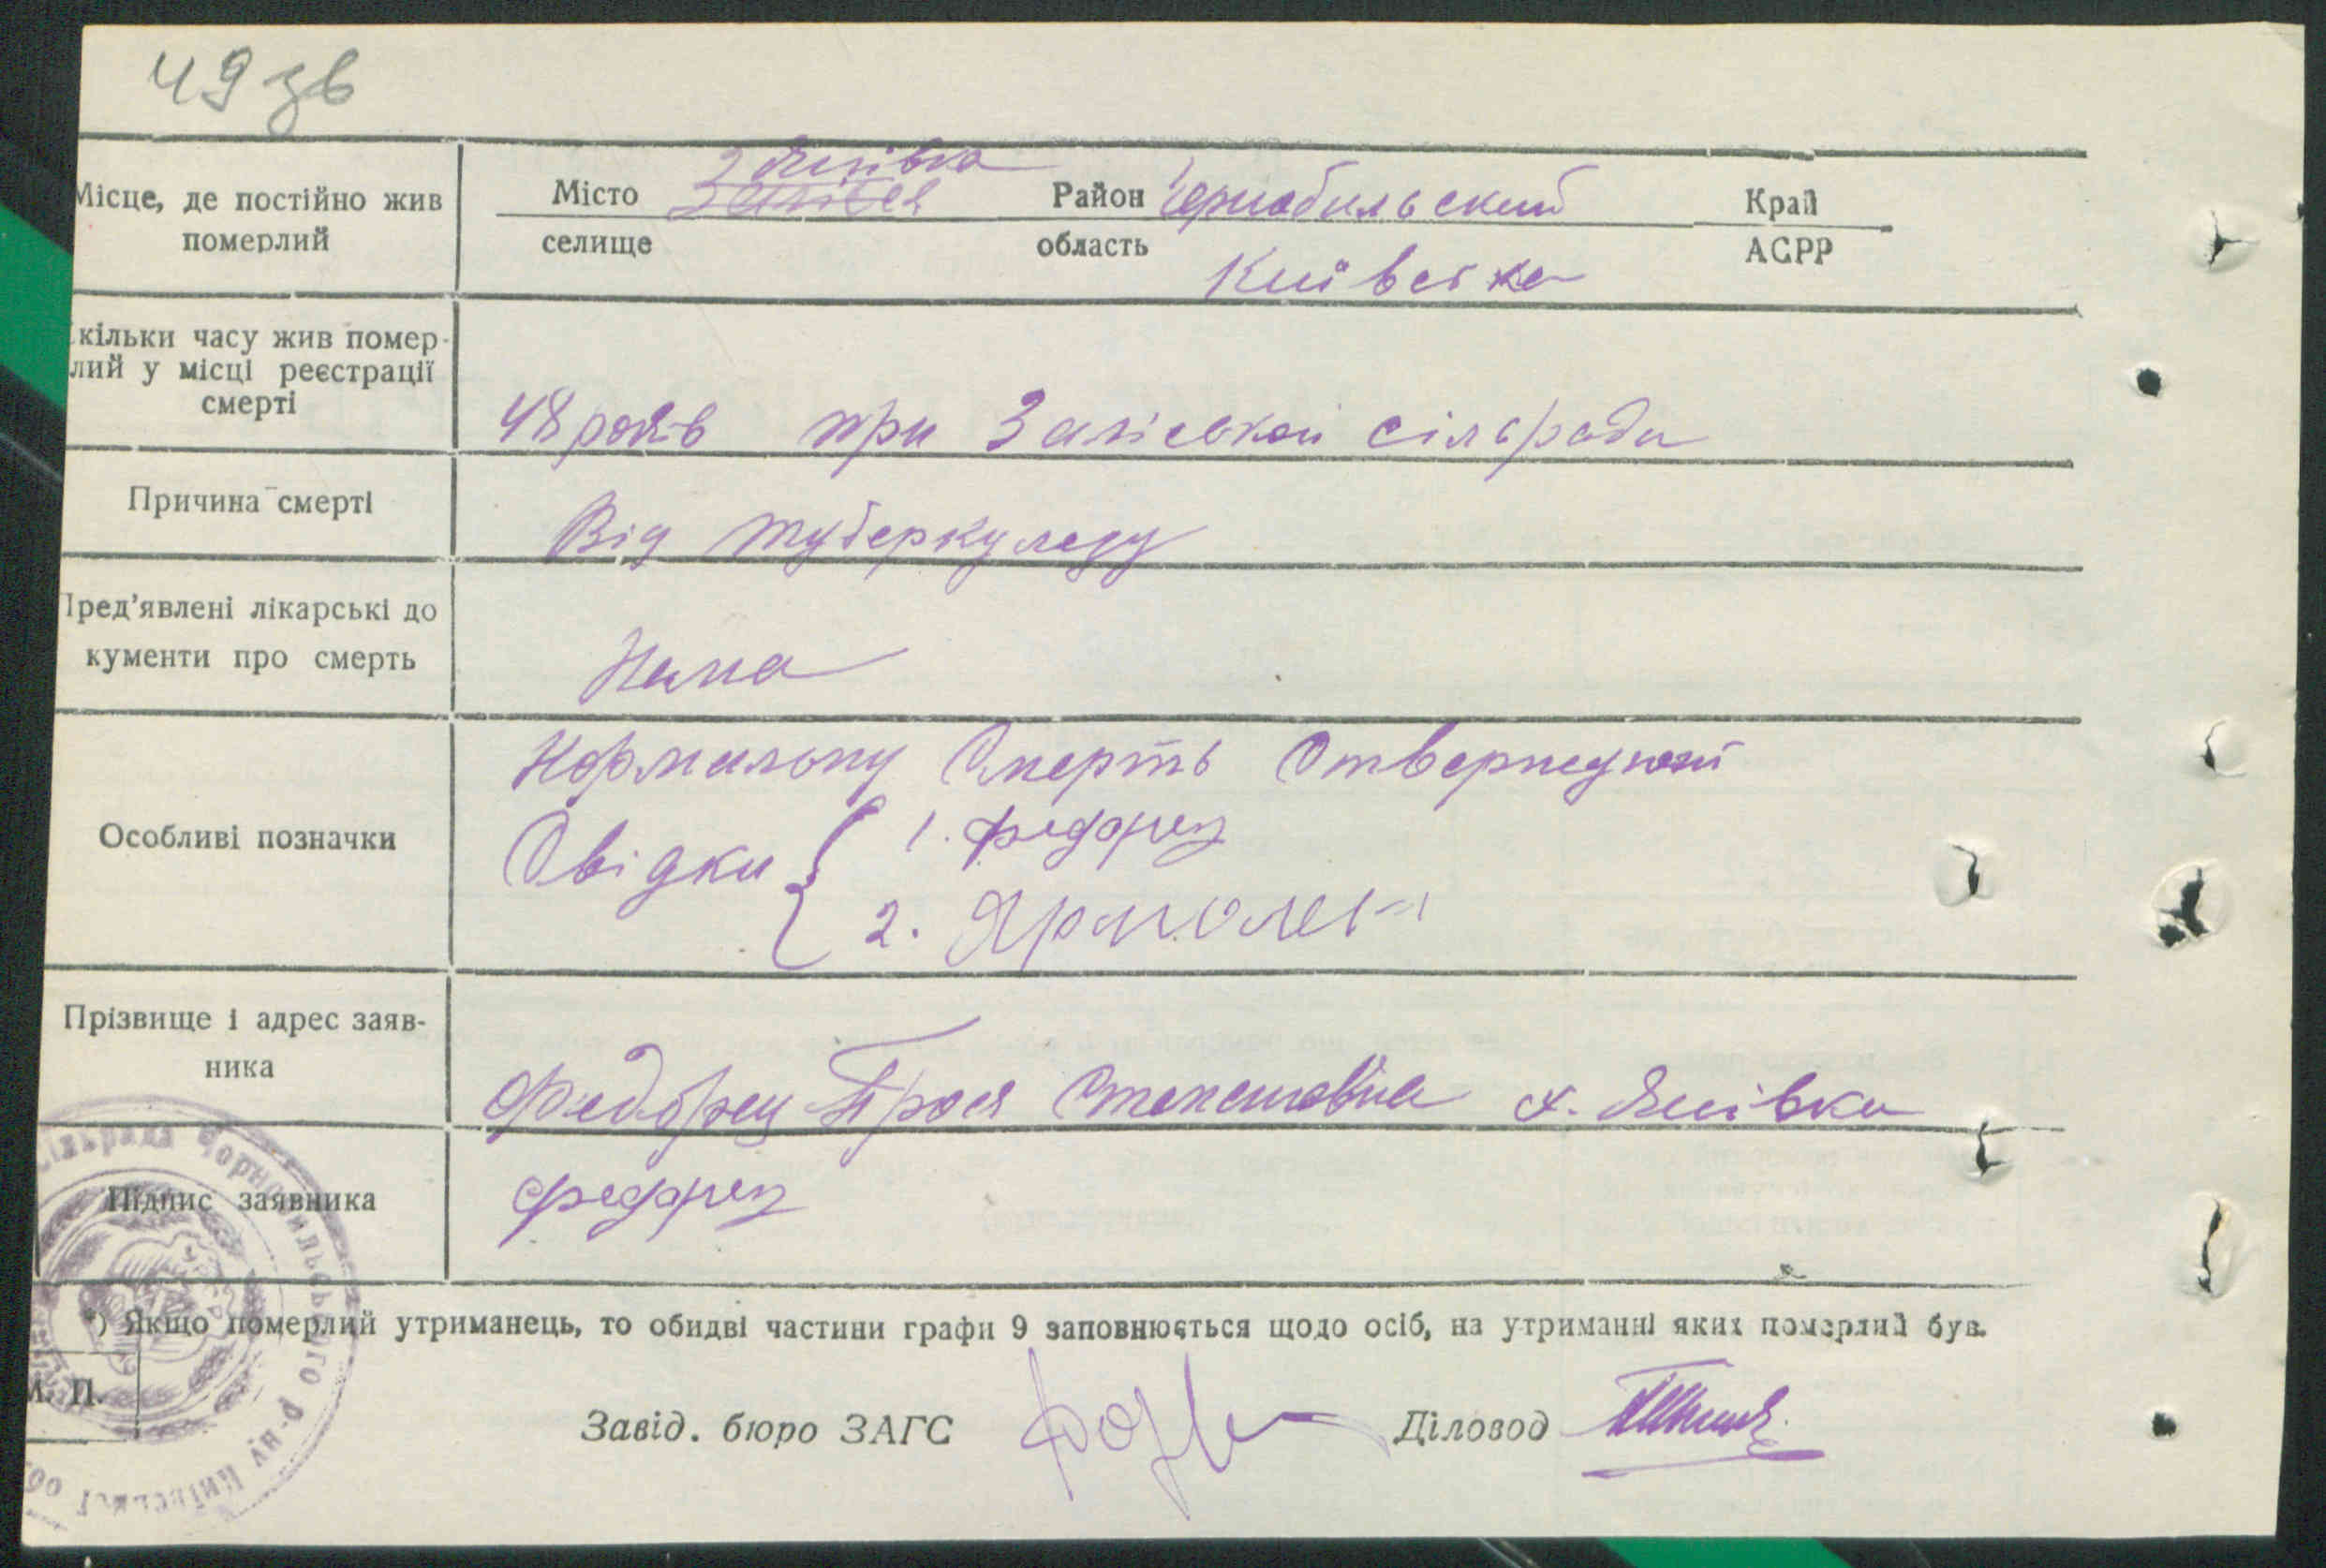 49 зв
Місце, де постійно жив
померлий
Місто
селище
Янівка
Район Чернобильский
область Київська
Край
АСРР
кільки часу жив помер-
лий у місці реєстрації
смерті
48 років при Заліської сільради
Причина смерті
Від туберкулезу
Пред'явлені лікарські до
кументи про смерть
Нема
Особливі позначки
Нормальну Смерть
Свідки
1. Федорец
2. Ярмолен
Прізвище і адрес заяв-
ника
Федорец х. Янівка
Підпис заявника
Федорец
*) Якщо померлий утриманець, то обидві частини графи 9 заповнюється щодо осіб, на утриманні яких померлий був.
М. П.
Завід. бюро ЗАГС
Діловод
сільрада Чорнобильського р-ну Київської об